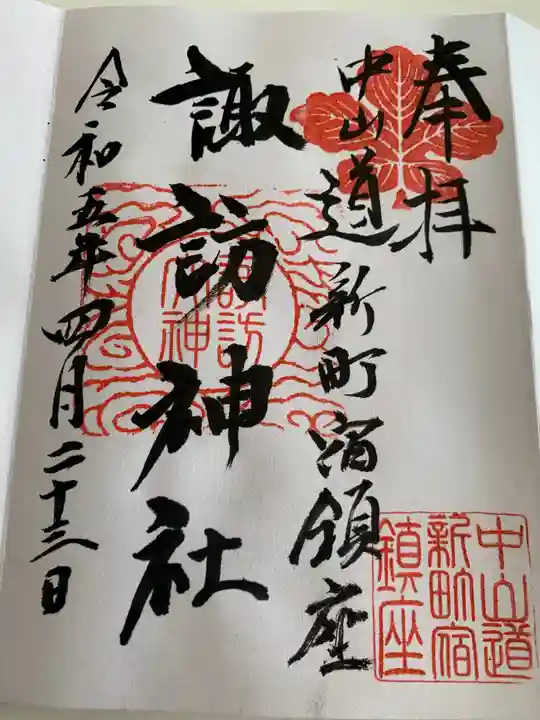 奉拝
中山道新町宿領座
諏訪神社
令和五年四月二十三日
諏訪
神
中山道
新町宿
鎮座